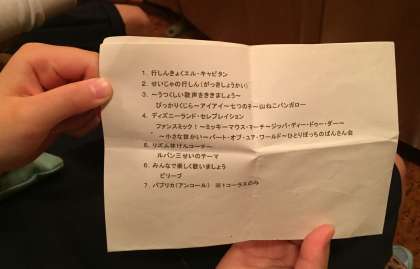 1. 行しんきょくエル・キャピタン
2. せいじゃの行しん(がっきしょうかい)
3. ～うつくしい歌声をききましょう～
びっかりくじら～アイアイ～七つの子～山ねこバンガロー
4. ディズニーランド・セレブレイション
ファンスミック!～ミッキーマウス・マーチ～ジッパ・ディー・ドゥー・ダー～
～小さな世かい～パート・オブ・ユア・ワールド～ひとりぼっちのばんさん会
5. リズム体けんコーナー
ルパン三せいのテーマ
6. みんなで楽しく歌いましょう
ビリーブ
7. パプリカ(アンコール) ※1コーラスのみ